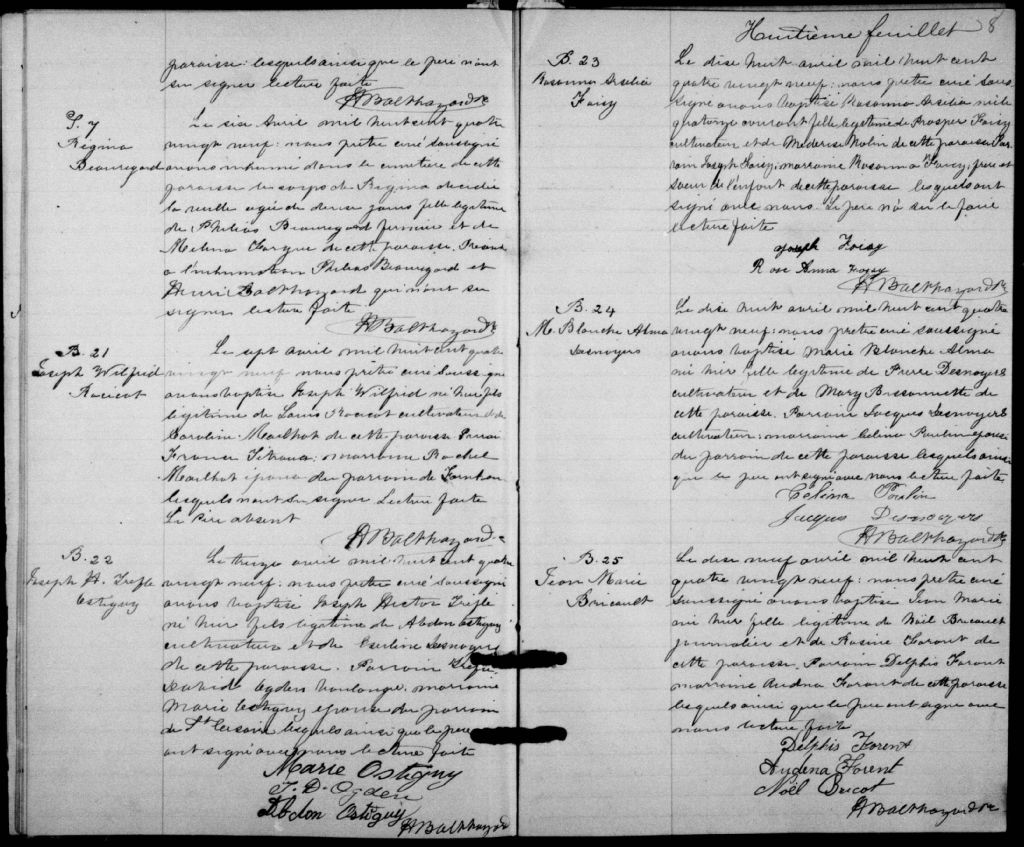 paroisse: lesquels ainsi que le père n'ont
su signer lecture faite
A Balthazard Ptre
S. 7
Régina
Beauregard
Le six Avril mil huit cent quatre
vingt neuf: nous prêtre curé soussigné
avons inhumé dans le cimetière de cette
paroisse le corps de Régina décédée
la veille agée de douze jours fille légitime
de Philias Beauregard fermier et de
Melina de cette paroisse. Présents
a l'inhumation Philias Beauregard et
Henri Balthazard qui n'ont su
signer lecture faite
A Balthazard Ptre
B. 21
Joseph Wilfrid
Racicot
Le sept avril mil huit cent quatre
vingt neuf nous prêtre curé soussigné
avons baptisé Joseph Wilfrid né hier fils
légitime de Louis Racicot cultivateur et de
Caroline Mailhot de cette paroisse Parrain
marraine Rachel
Mailhot épouse du parrain de
lesquels n'ont su signer Lecture faite
Le Père absent
A Balthazard Ptre
B. 22
Joseph H. Trefle
Ostiguy
Le treize avril mil huit cent quatre
vingt neuf: nous prêtre curé soussigné
avons baptisé Joseph Hector Trefle
né hier fils légitime de Abdon Ostiguy
cultivateur et de Desnoyers
de cette paroisse. Parrain
David Ogden boulanger: marraine
Marie Ostiguy épouse du parrain
de St Césaire lesquels ainsi que le père
ont signé avec nous lecture faite
Marie Ostiguy
T. D. Ogden
Abdon Ostiguy
A Balthazard
Huitième feuillet 8
B. 23
Rosanna Arselia
Foisy
Le dise huit avril mil huit cent
quatre vingt neuf: nous prêtre curé sous
signé avons baptisé Rosanna Arselia née le
quatorze courant fille légitime de Prosper Foisy
cultivateur et de Mederise Nolin de cette paroisse Par
rain Joseph Foisy; marraine Rosanna Foisy; frère et
soeur de l'enfant de cette paroisse lesquels ont
signé avec nous. Le père n'a su le faire
lecture faite
Joseph Foisy
Rose Anna Foisy
A Balthazard Ptre
B. 24
M. Blanche Alma
Desnoyers
Le dise huit avril mil huit cent quatre
vingt neuf: nous prêtre curé soussigné
avons baptisé Marie Blanche Alma
née hier fille légitime de Pierre Desnoyers
cultivateur et de Mary Bissonnette de
cette paroisse. Parrain Jacques Desnoyers
cultivateur: marraine Celina Poulin épouse
du parrain de cette paroisse lesquels ainsi
que le père ont signé avec nous lecture faite
Célina Poulin
Jacques Desnoyers
A Balthazard Ptre
B. 25
Jean Marie
Bricault
Le dise neuf avril mil huit cent
quatre vingt neuf: nous prêtre curé
soussigné avons baptisé Jean Marie
né hier fille légitime de Noël Bricault
journalier et de Rosine Forant de
cette paroisse. Parrain Delphis Forant
marraine Audna Forant de cette paroisse
lesquels ainsi que le père ont signé avec
nous lecture faite
Delphis Forent
Audena Forent
Noël Bricot
A Balthazard Ptre